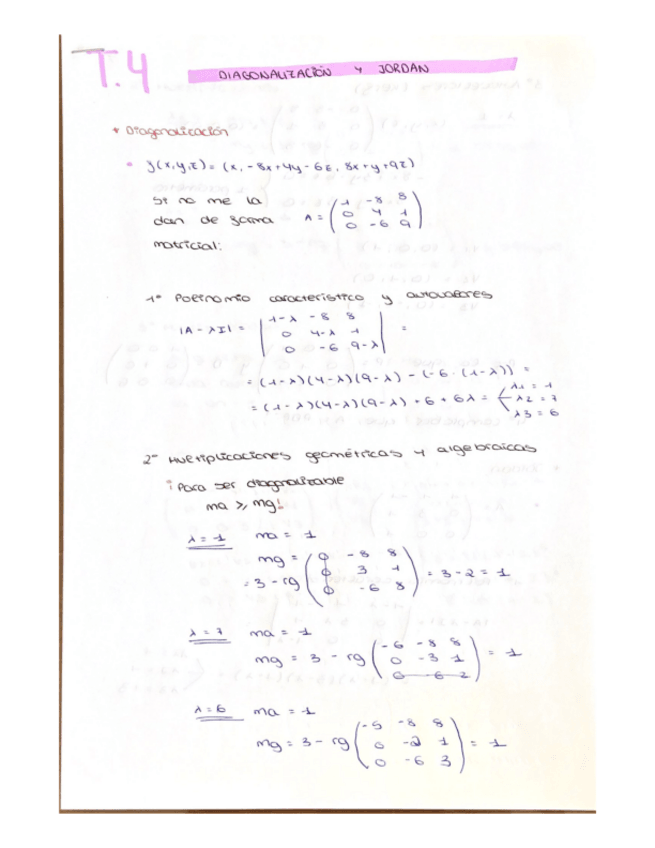 T.4
DIAGONALIZACIÓN Y JORDAN
* Diagonalización
f(x,y,z) = (x, -8x+4y-6z, 8x+y+9z)
Si no me la
dan de forma
matricial:
A = (1 -8 8
0 4 1
0 -6 9)
1º Polinomio característico y autovalores
|A - λI| = |1-λ -8 8
0 4-λ 1
0 -6 9-λ| =
= (1-λ)(4-λ)(9-λ) - (-6·(1-λ)) =
= (1-λ)(4-λ)(9-λ) + 6 + 6λ =
λ1 = 1
λ2 = 7
λ3 = 6
2º Multiplicaciones geométricas y algebraicas
¡Para ser diagonalizable
ma ≥ mg!
λ = 1 ma = 1
mg =
= 3 - rg (0 -8 8
0 3 1
0 -6 8) = 3 - 2 = 1
λ = 7 ma = 1
mg = 3 - rg (-6 -8 8
0 -3 1
0 -6 2) = 1
λ = 6 ma = 1
mg = 3 - rg (-5 -8 8
0 -2 1
0 -6 3) = 1